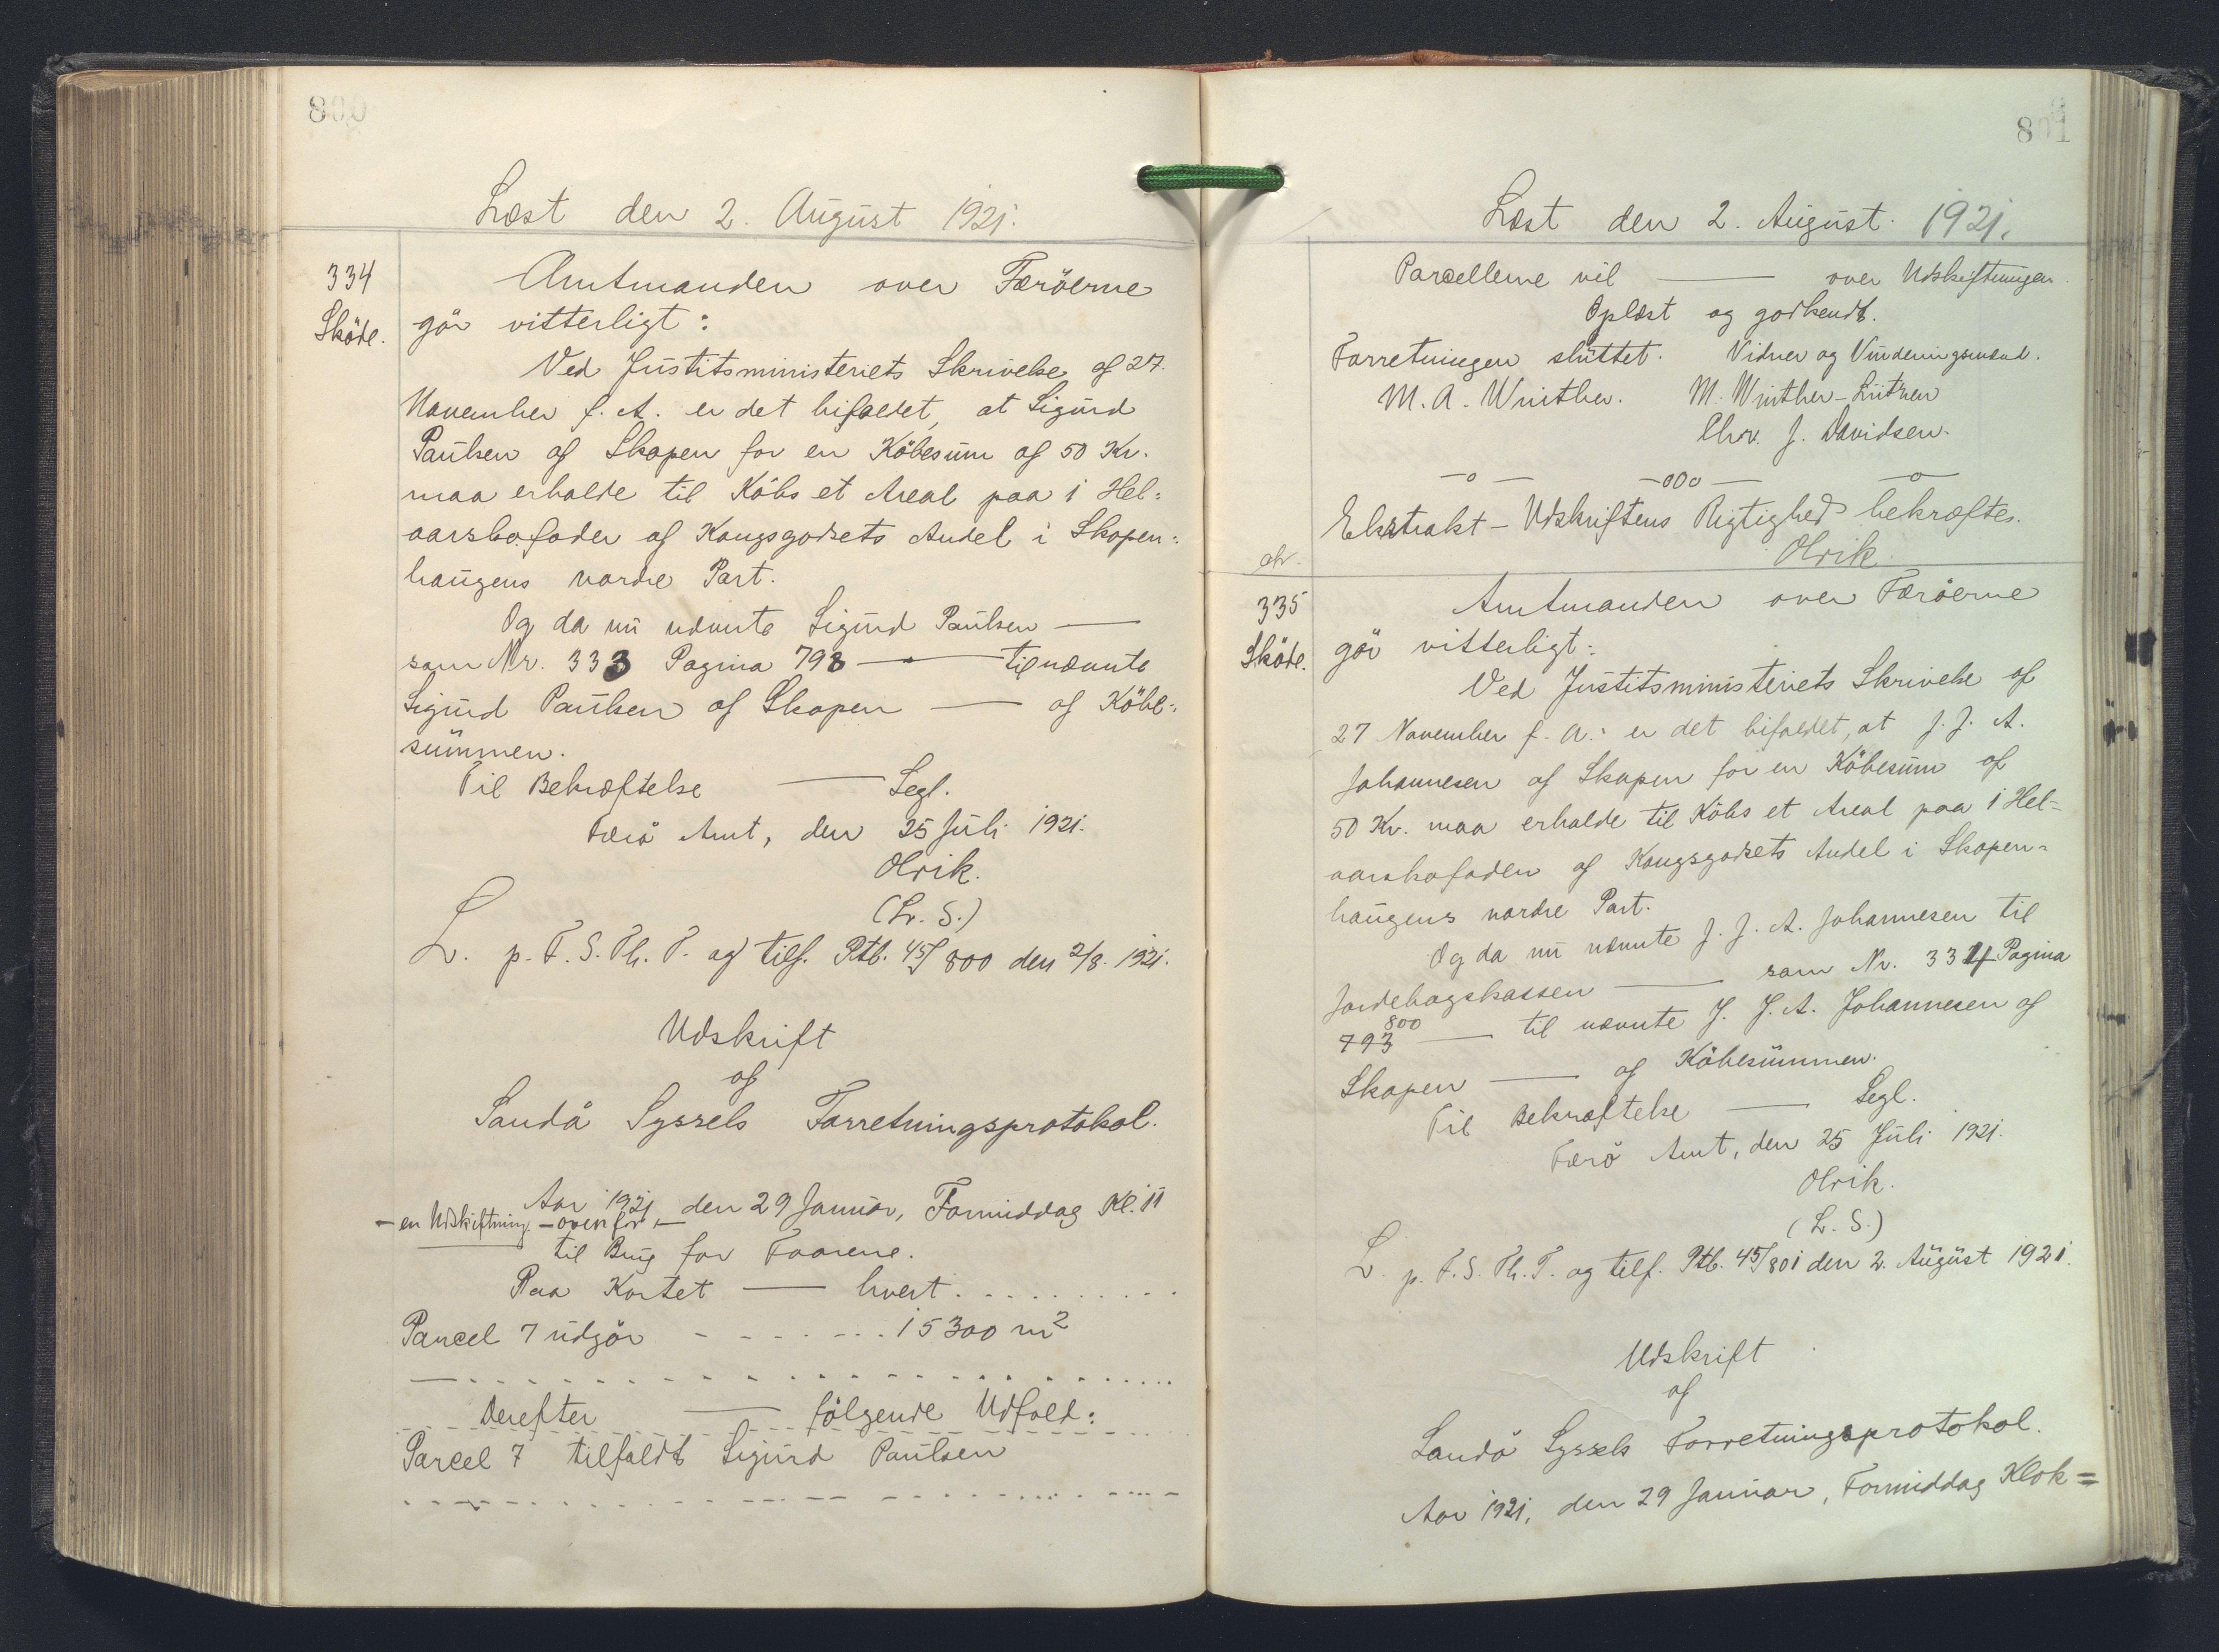 800
Læst den 2. August 1921.
334
Sköde.
Amtmanden over Færöerne
gör vitterligt:
Ved Justitsministeriets Skrivelse af 27.
November f. A. er det bifaldet, at Sigurd
Paulsen af Skopen for en Köbesum af 50 Kr.
maa erholde til Köbs et Areal paa 1 Hel-
aarskofoder af Kongsgodsets Andel i Skopen-
haugens nordre Part.
Og da nu nævnte Sigurd Paulsen —
som Nr. 333 Pagina 798 — til nævnte
Sigurd Paulsen af Skopen — af Köbe-
summen.
Til Bekræftelse — Segl.
Færö Amt, den 25 Juli 1921.
Olrik.
(L. S.)
L. p. F. S. Th. T. og tilf. Ptb. 45/800 den 2/8. 1921.
Udskrift
af
Sandö Syssels Forretningsprotokol.
Aar 1921 den 29 Januar, Formiddag Kl. 11
— en Udskiftning. — ovenfor —
til Brug for Faarene.
Paa Kortet — hvert . . . . . . . . . .
Parcel 7 udgör - - - - . . . 15300 m2
Derefter — fölgende Udfald:
Parcel 7 tilfaldt Sigurd Paulsen
801
Læst den 2. August 1921.
Parcellerne vil — over Udskiftningen.
Oplæst og godkendt.
Forretningen sluttet. Vidner og Vurderingsmænd.
M. A. Winther. M. Winther-Lützen
Chr. J. Davidsen.
—o— —oOo— —o—
Ekstrakt-Udskriftens Rigtighed bekræftes.
Olrik.
335
Sköde.
Amtmanden over Færöerne
gör vitterligt:
Ved Justitsministeriets Skrivelse af
27 November f. A. er det bifaldet, at J. J. A.
Johannesen af Skopen for en Köbesum af
50 Kr. maa erholde til Köbs et Areal paa 1 Hel-
aarskofoder af Kongsgodsets Andel i Skopen-
haugens nordre Part.
Og da nu nævnte J. J. A. Johannesen til
Jordebogskassen — som Nr. 334 Pagina
800
793 — til nævnte J. J. A. Johannesen af
Skopen — af Köbesummen.
Til Bekræftelse — Segl.
Færö Amt, den 25 Juli 1921.
Olrik.
(L. S.)
L. p. F. S. Th. T. og tilf. Ptb. 45/801 den 2. August 1921.
Udskrift
af
Sandö Syssels Forretningsprotokol.
Aar 1921, den 29 Januar, Formiddag Klok=